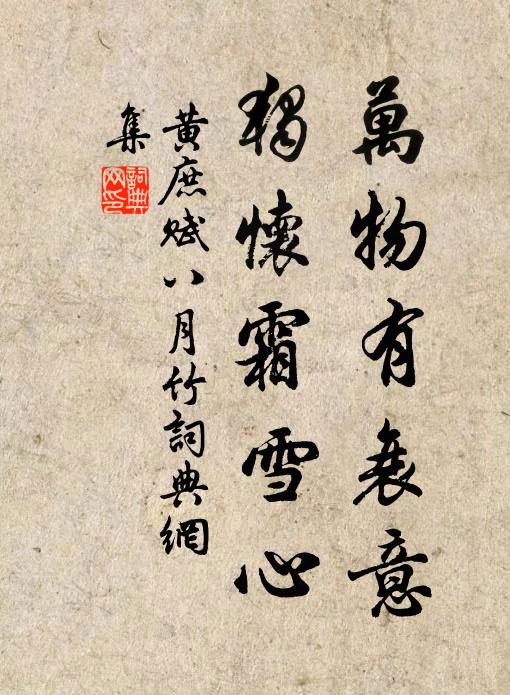 萬物有衰意
獨懷霜雪心
黃庶賦八月竹詞典網
集
詞典
网印